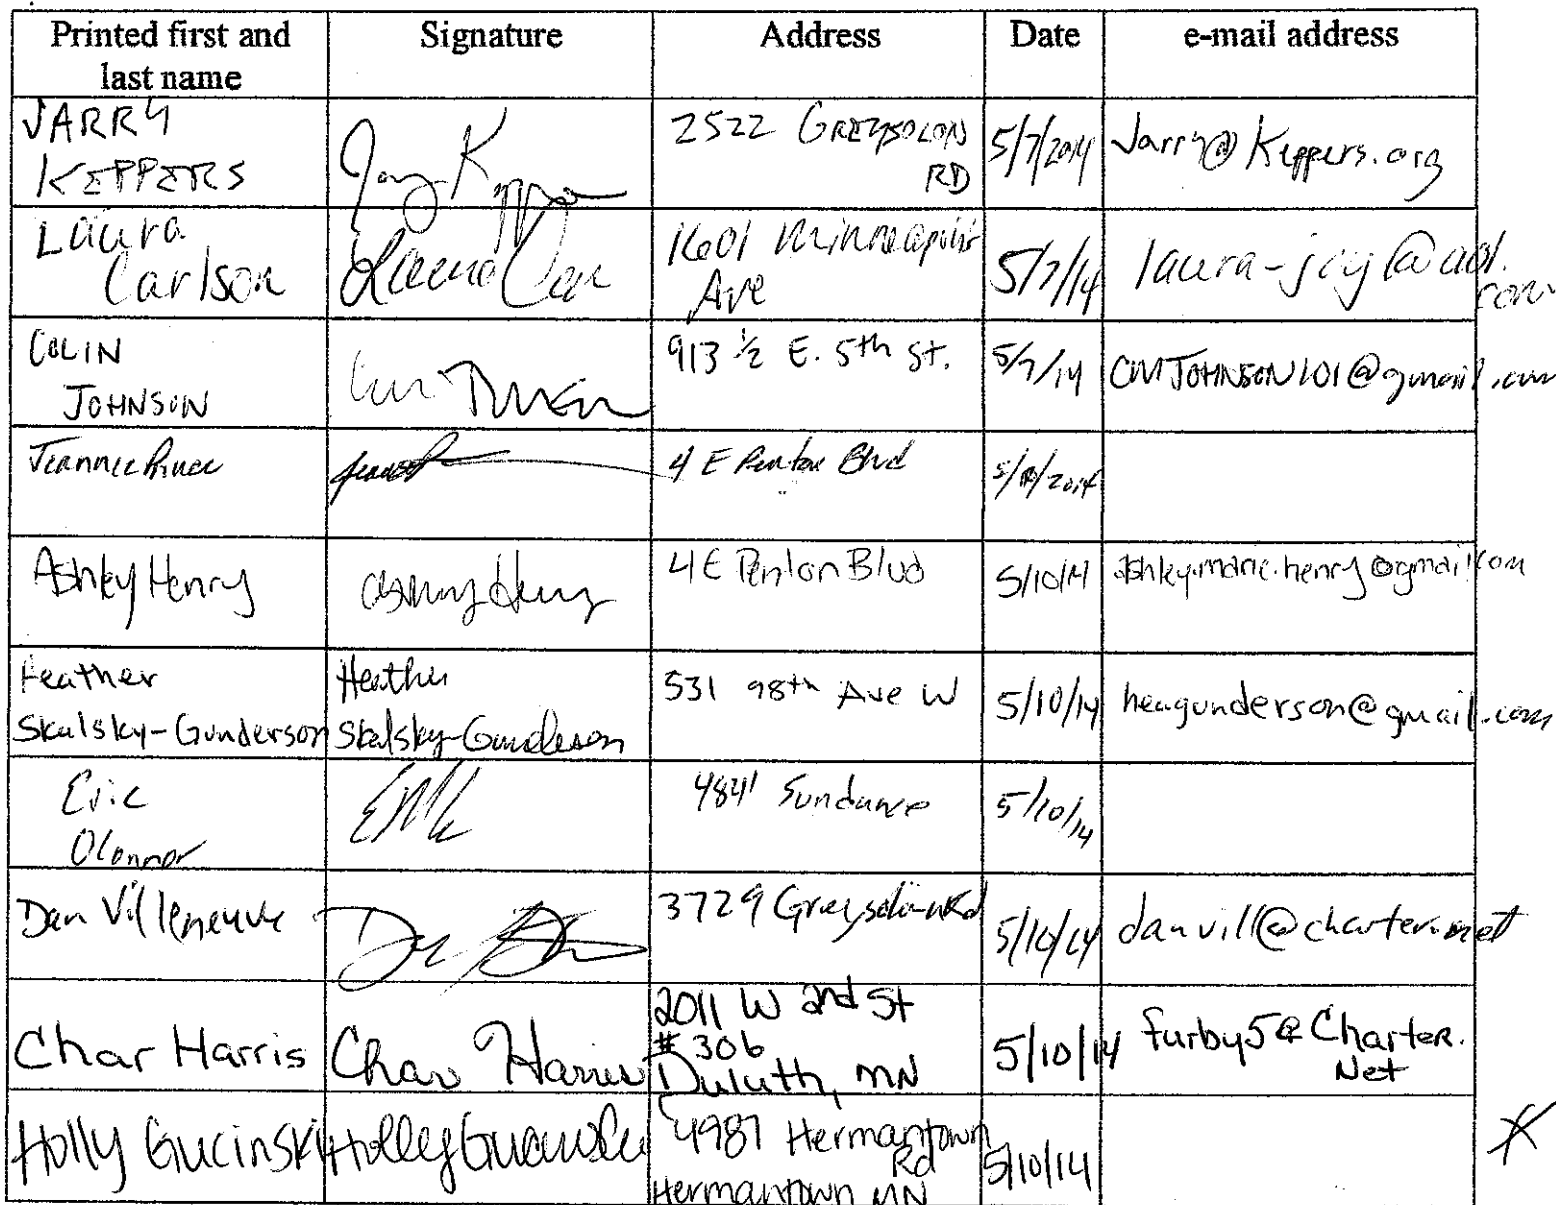 Printed first and last name Signature Address Date e-mail address
JARRY KEPPERS 2522 GREYSOLON RD 5/7/2014 Jarry@Keppers.org
Laura Carlson 1601 Minneapolis Ave 5/7/14 laura-joy@aol.com
COLIN JOHNSON 913 ½ E. 5th St. 5/7/14 CMJOHNSON101@gmail.com
4 E Blvd
Ashley Henry Ashley Henry 4 E Penton Blvd 5/10/14 ashley.marie.henry@gmail.com
Heather Skalsky-Gunderson Heather Skalsky-Gunderson 531 98th Ave W 5/10/14 heagunderson@gmail.com
Eric OConnor 4841 Sundance 5/10/14
Dan Villeneuve 3729 Greysolon Rd 5/10/14 danvill@charter.net
Char Harris Char Harris 2011 W 2nd St #306 Duluth, MN 5/10/14 furby5@Charter.Net
Holly Gucinski Holly Gucinski 4987 Hermantown Rd Hermantown MN 5/10/14